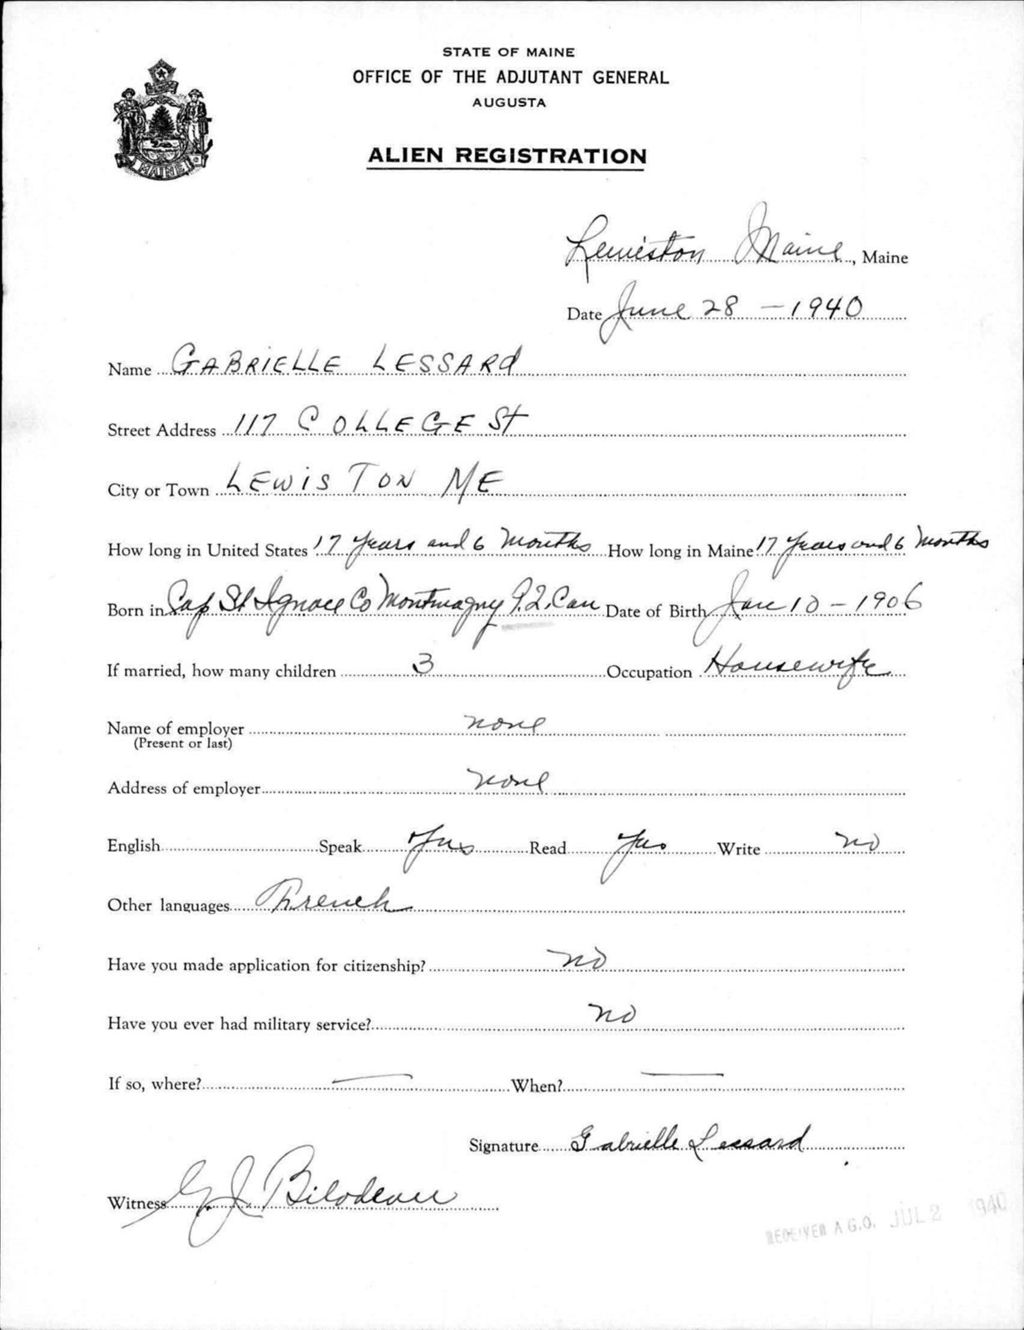 STATE OF MAINE
OFFICE OF THE ADJUTANT GENERAL
AUGUSTA
ALIEN REGISTRATION
MAINE
Lewiston Maine, Maine
Date June 28 - 1940
Name GABRIELLE LESSARd
Street Address 117 COLLEGE St
City or Town LEWiSTON ME
How long in United States 17 Years and 6 Months How long in Maine 17 Years and 6 Months
Born in Cap St Ignace Co Montmagny P.Q. Can Date of Birth Jan 10 - 1906
If married, how many children 3 Occupation Housewife
Name of employer none
(Present or last)
Address of employer none
English Speak Yes Read Yes Write no
Other languages French
Have you made application for citizenship? no
Have you ever had military service? no
If so, where? — When? —
Signature Gabrielle Lessard
Witness G. J. Bilodeau
RECEIVED A.G.O. JUL 2 1940